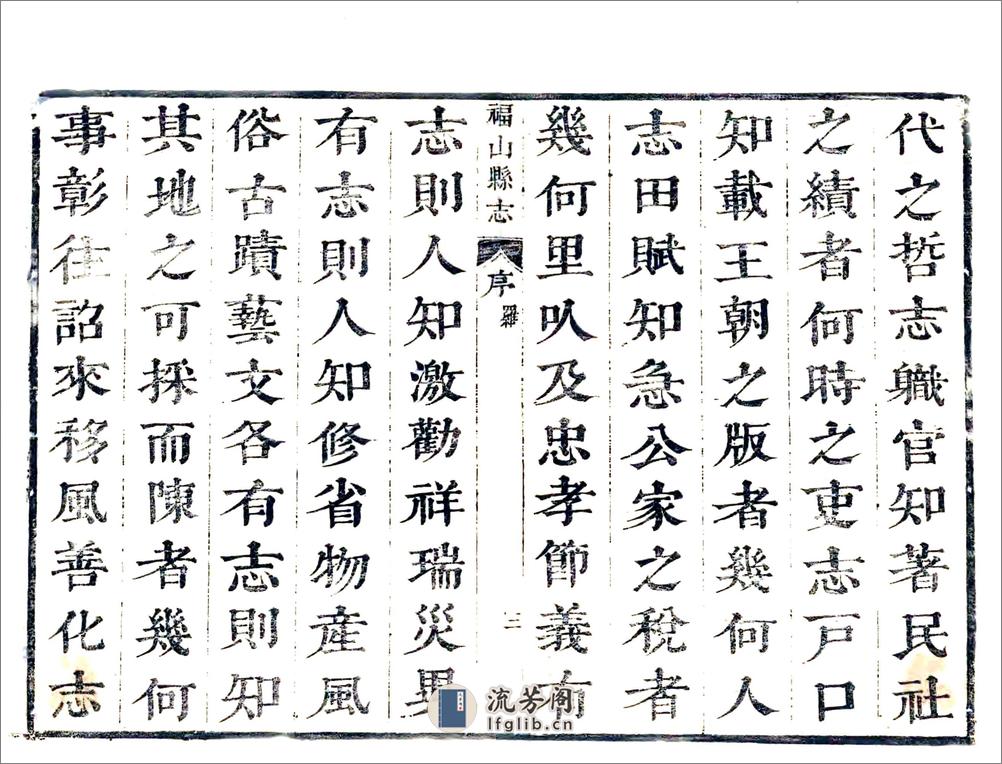 代之哲志職官知著民社
之績者何時之吏志戸口
知載王朝之版者幾何人
志田賦知急公家之稅者
幾何里以及忠孝節義有
福山縣志 序 羅 三
志則人知激勸祥瑞災異
有志則人知修省物産風
俗古蹟藝文各有志則知
其地之可採而陳者幾何
事彰往詔來移風善化志
流芳阁
lfglib.cn